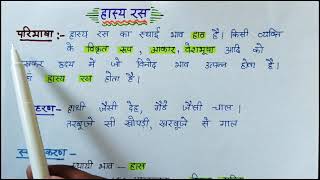 हास्य रस
परिभाषा :- हास्य रस का स्थाई भाव हास है। किसी व्यक्ति
के विकृत रूप, आकार, वेशभूषा आदि को
देखकर हृदय में जो विनोद भाव उत्पन्न होता है।
हास्य रस होता है।
हरण - हाथी जैसी देह, गैंडे जैसी चाल।
तरबूजे सी खोपड़ी, खरबूजे से गाल
करण -
स्थायी भाव - हास